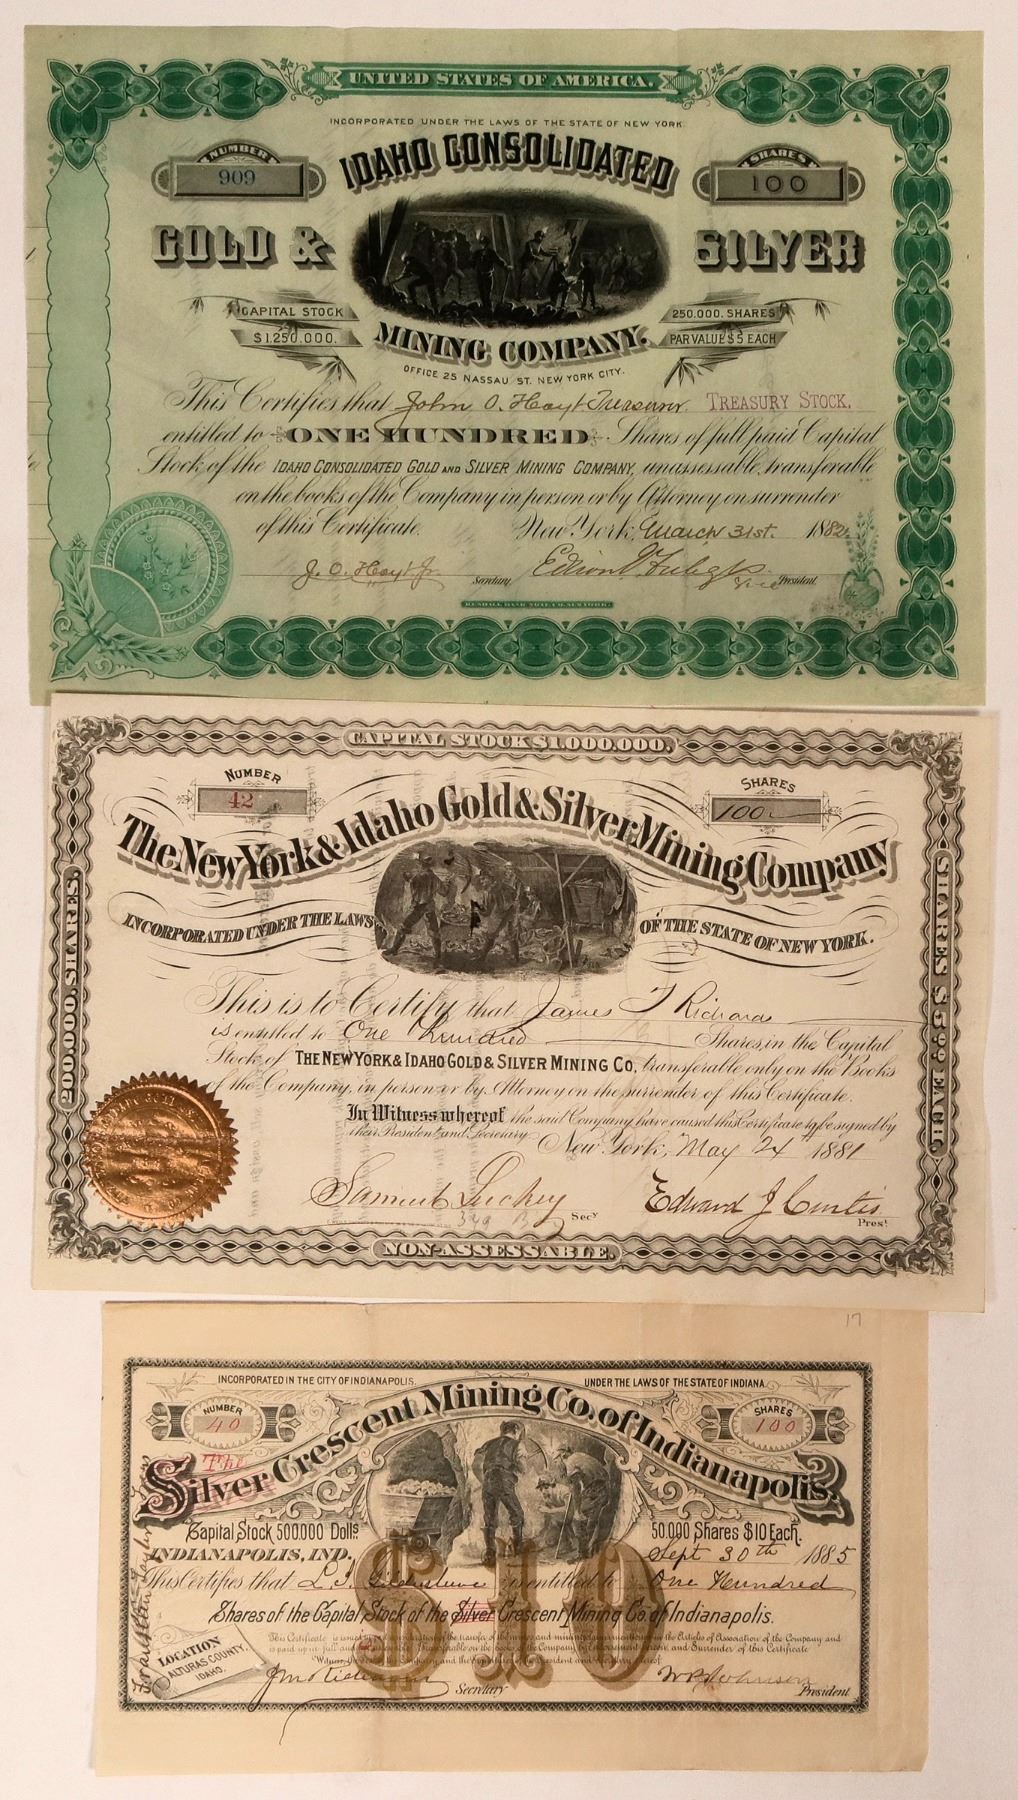 UNITED STATES OF AMERICA.
INCORPORATED UNDER THE LAWS OF THE STATE OF NEW YORK
NUMBER
909
IDAHO CONSOLIDATED
SHARES
100
GOLD & SILVER
CAPITAL STOCK
$1,250,000.
250,000. SHARES
PAR VALUE $5 EACH
MINING COMPANY.
OFFICE 25 NASSAU ST. NEW YORK CITY.
This Certifies that John O. Hoyt Treasurer. TREASURY STOCK.
entitled to ONE HUNDRED Shares of full paid Capital
Stock of the IDAHO CONSOLIDATED GOLD AND SILVER MINING COMPANY, unassessable, transferable
on the books of the Company in person or by Attorney on surrender
of this Certificate. New York, March 31st. 1882.
J. O. Hoyt Jr. Secretary Vice President
KENDALL BANK NOTE CO. NEW YORK.
CAPITAL STOCK $1,000,000.
NUMBER
42
SHARES
100
The New York & Idaho Gold & Silver Mining Company
INCORPORATED UNDER THE LAWS OF THE STATE OF NEW YORK.
200,000. SHARES.
SHARES $5.00 EACH.
This is to Certify that James T Richards
is entitled to One Hundred Shares, in the Capital
Stock of THE NEW YORK & IDAHO GOLD & SILVER MINING CO, transferable only on the Books
of the Company, in person or by Attorney on the surrender of this Certificate.
In Witness whereof the said Company have caused this Certificate to be signed by
their President and Secretary. New York, May 24 1881
Samuel Luckey Secy
Edward J. Curtis Prest
NON-ASSESSABLE.
17
INCORPORATED IN THE CITY OF INDIANAPOLIS. UNDER THE LAWS OF THE STATE OF INDIANA
NUMBER
40
SHARES
100
The
Silver Crescent Mining Co. of Indianapolis.
Capital Stock 500.000 Dolls.
50.000 Shares $10 Each.
INDIANAPOLIS, IND. Sept 30th 1885
This Certifies that is entitled to One Hundred
Shares of the Capital Stock of the Silver Crescent Mining Co. of Indianapolis.
$10
LOCATION
ALTURAS COUNTY,
IDAHO.
Secretary
W. P. Johnson President